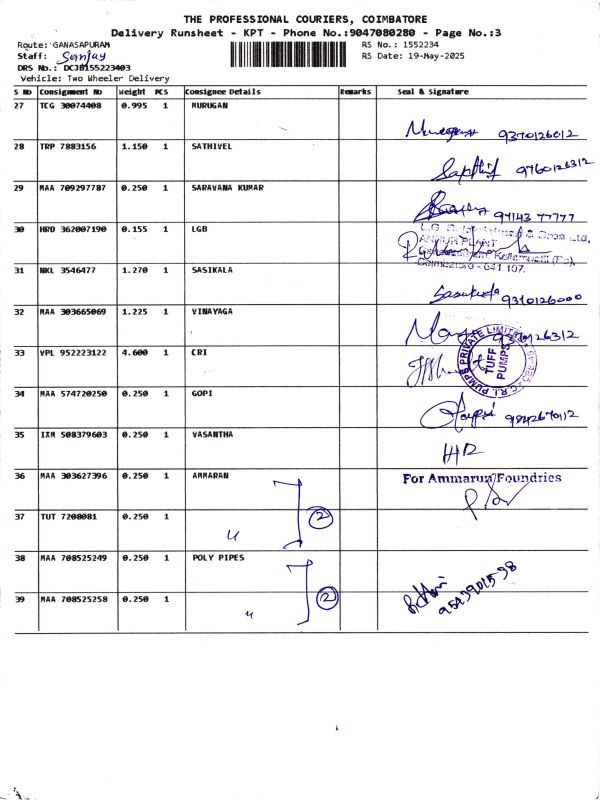 THE PROFESSIONAL COURIERS, COIMBATORE
Delivery Runsheet - KPT - Phone No.:9047080280 - Page No.:3
Route: GANASAPURAM
RS No.: 1552234
Staff: Sanjay
RS Date: 19-May-2025
DRS No.: DCJB155223403
Vehicle: Two Wheeler Delivery
S No Consignment No Weight PCS Consignee Details Remarks Seal & Signature
27 TCG 30074408 0.995 1 MURUGAN
9370126012
28 TRP 7883156 1.150 1 SATHIVEL
9760126312
29 MAA 709297787 0.250 1 SARAVANA KUMAR
94143 77777
30 HRD 362007190 0.155 1 LGB
& Bros Ltd,
ANNUR PLANT
Coimbatore - 641 107.
31 NKL 3546477 1.270 1 SASIKALA
Sasikala 9310126000
32 MAA 303665069 1.225 1 VINAYAGA
126312
33 VPL 952223122 4.600 1 CRI
C.R.I. PUMPS PRIVATE LIMITED
TUFF PUMPS
34 MAA 574720250 0.250 1 GOPI
9842670112
35 IXM 508379603 0.250 1 VASANTHA
HD
36 MAA 303627396 0.250 1 AMMARAN
For Ammarun Foundries
37 TUT 7208081 0.250 1 〃
2
38 MAA 708525249 0.250 1 POLY PIPES
39 MAA 708525258 0.250 1 〃
2